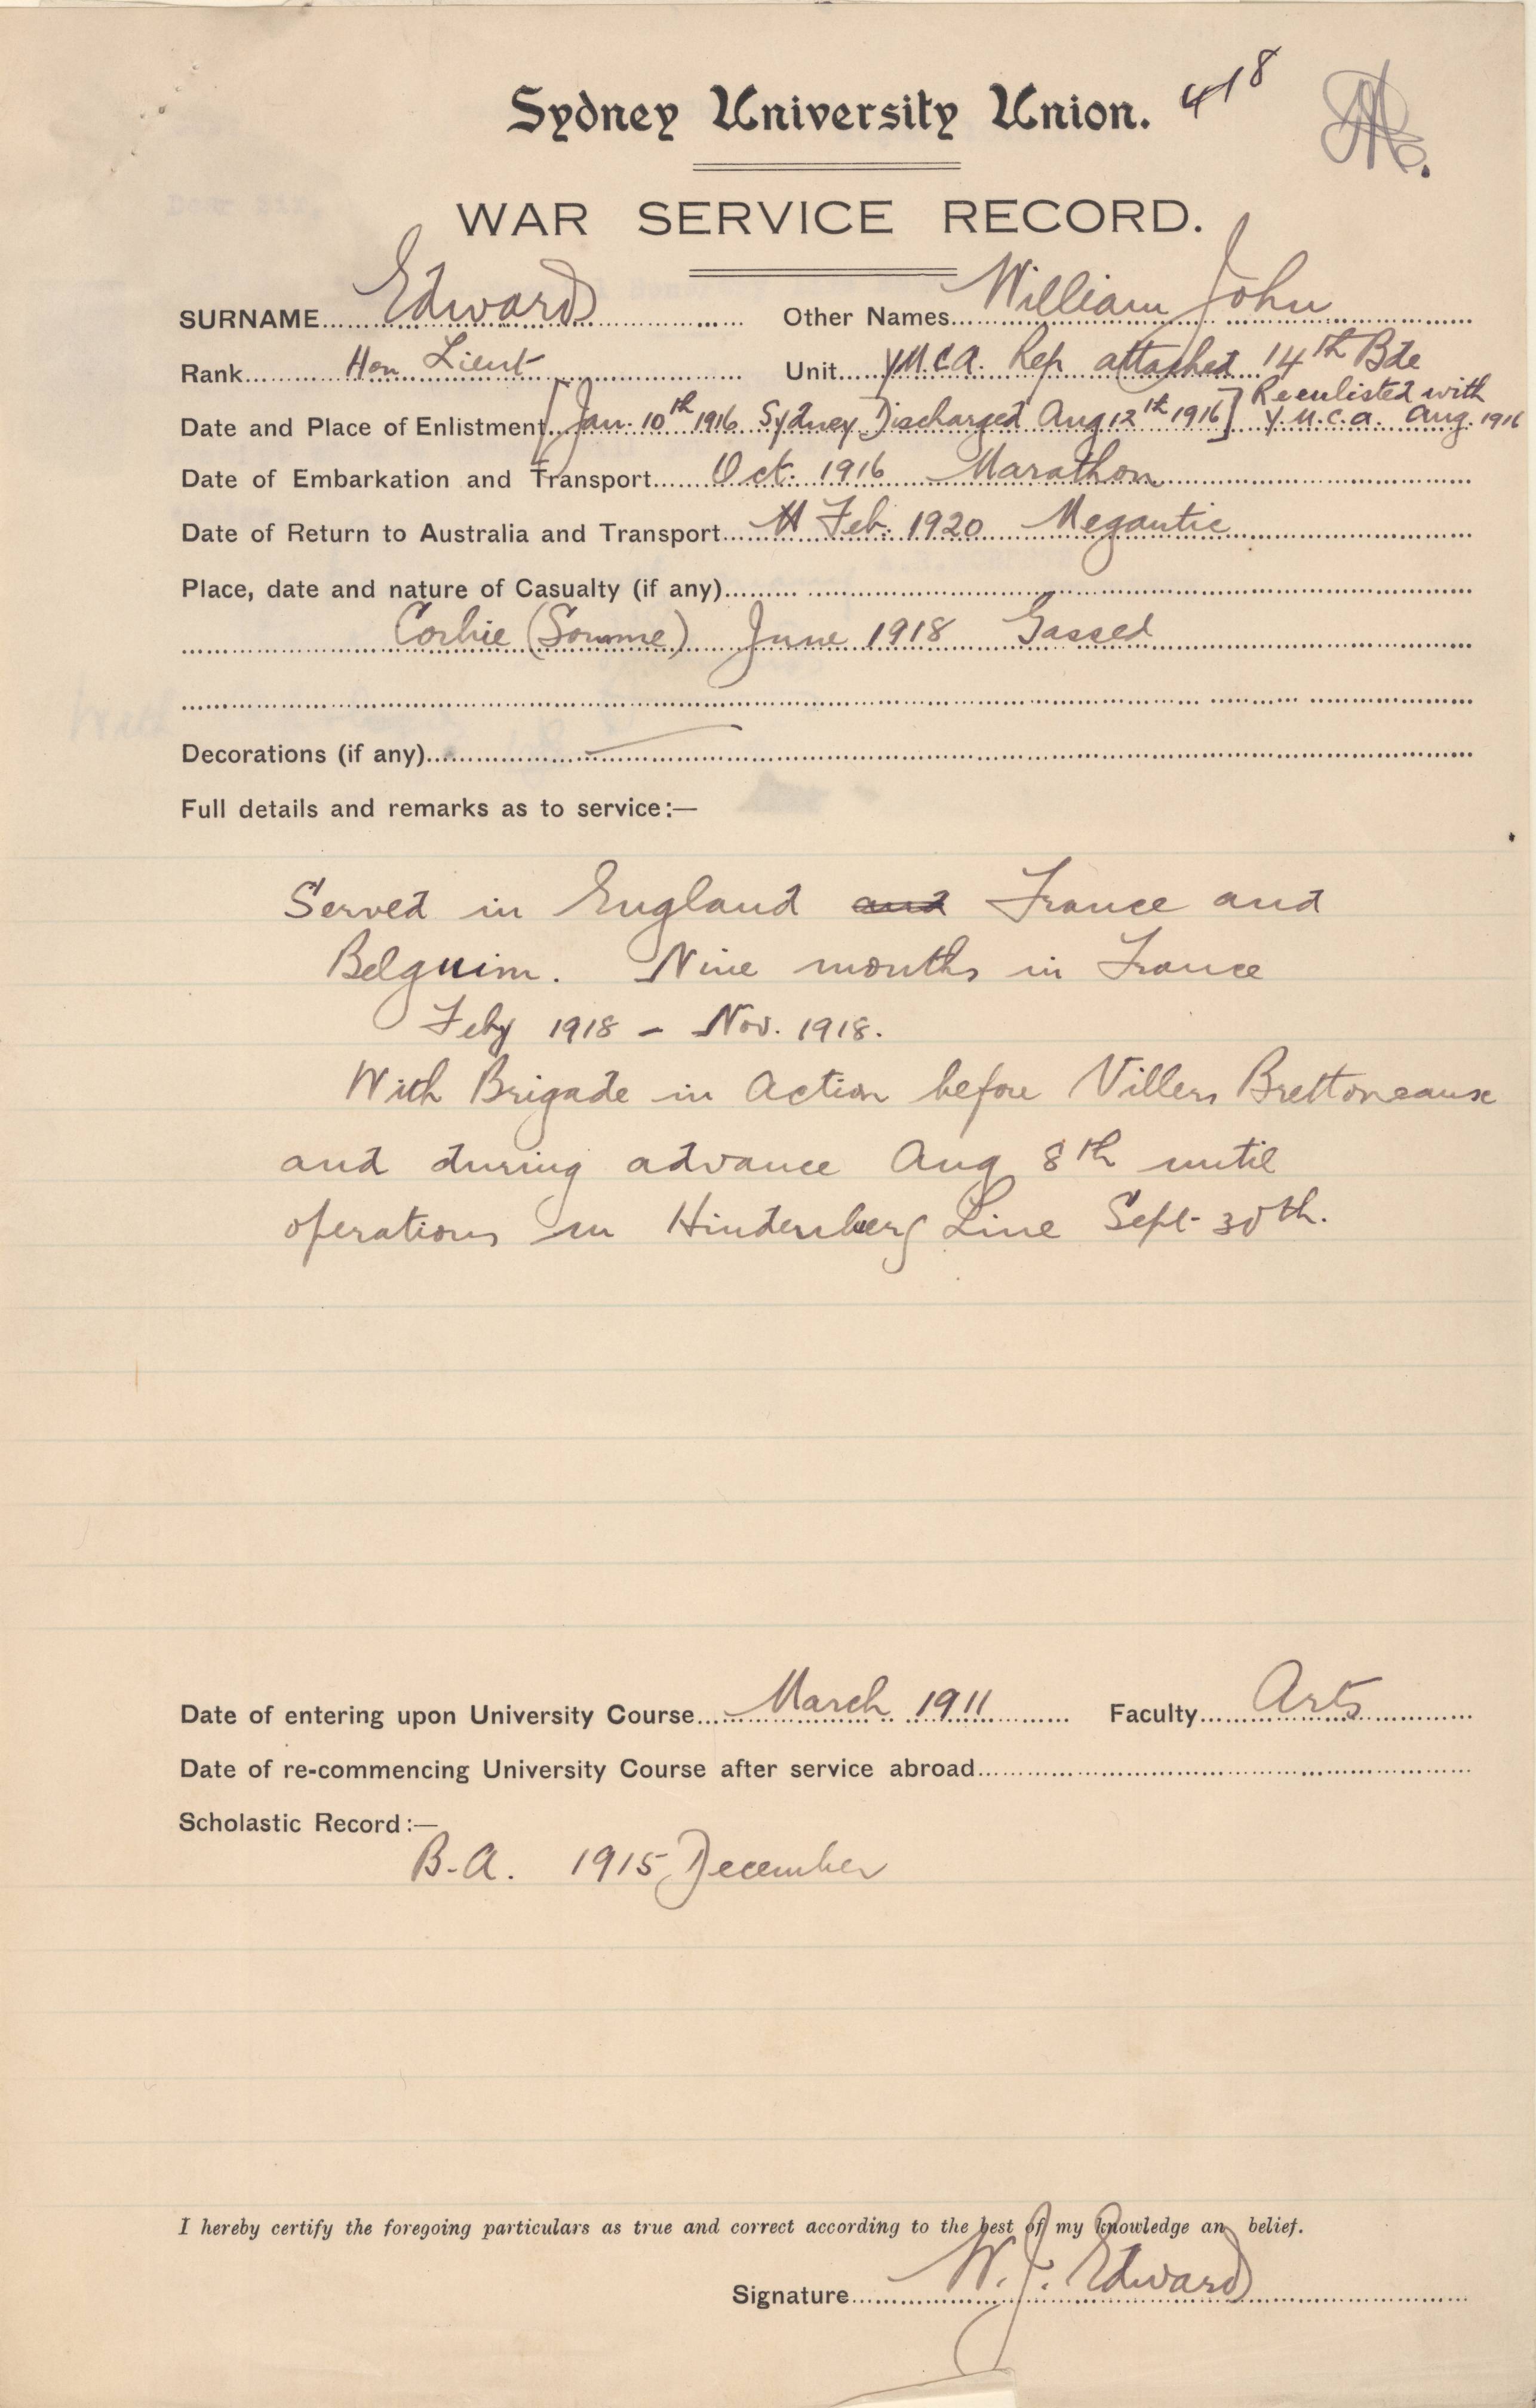 Sydney University Union. 418
WAR SERVICE RECORD.
SURNAME Edward Other Names William John
Rank Hon Lieut Unit Y.M.C.A. Rep attached 14th Bde
Date and Place of Enlistment [Jan. 10th 1916 Sydney Discharged Aug 12th 1916] Reenlisted with
Y.M.C.A. Aug. 1916
Date of Embarkation and Transport Oct. 1916 Marathon
Date of Return to Australia and Transport Feb. 1920 Megantic
Place, date and nature of Casualty (if any)
Corbie (Somme) June 1918 Gassed
Decorations (if any) —
Full details and remarks as to service:—
Served in England and France and
Belguim. Nine months in France
Feby 1918 - Nov. 1918.
With Brigade in Action before Villers Brettoneaux
and during advance Aug 8th until
operations in Hindenberg Line Sept. 30th.
Date of entering upon University Course March 1911 Faculty Arts
Date of re-commencing University Course after service abroad
Scholastic Record:—
B.A. 1915 December
I hereby certify the foregoing particulars as true and correct according to the best of my knowledge an belief.
Signature W. J. Edward